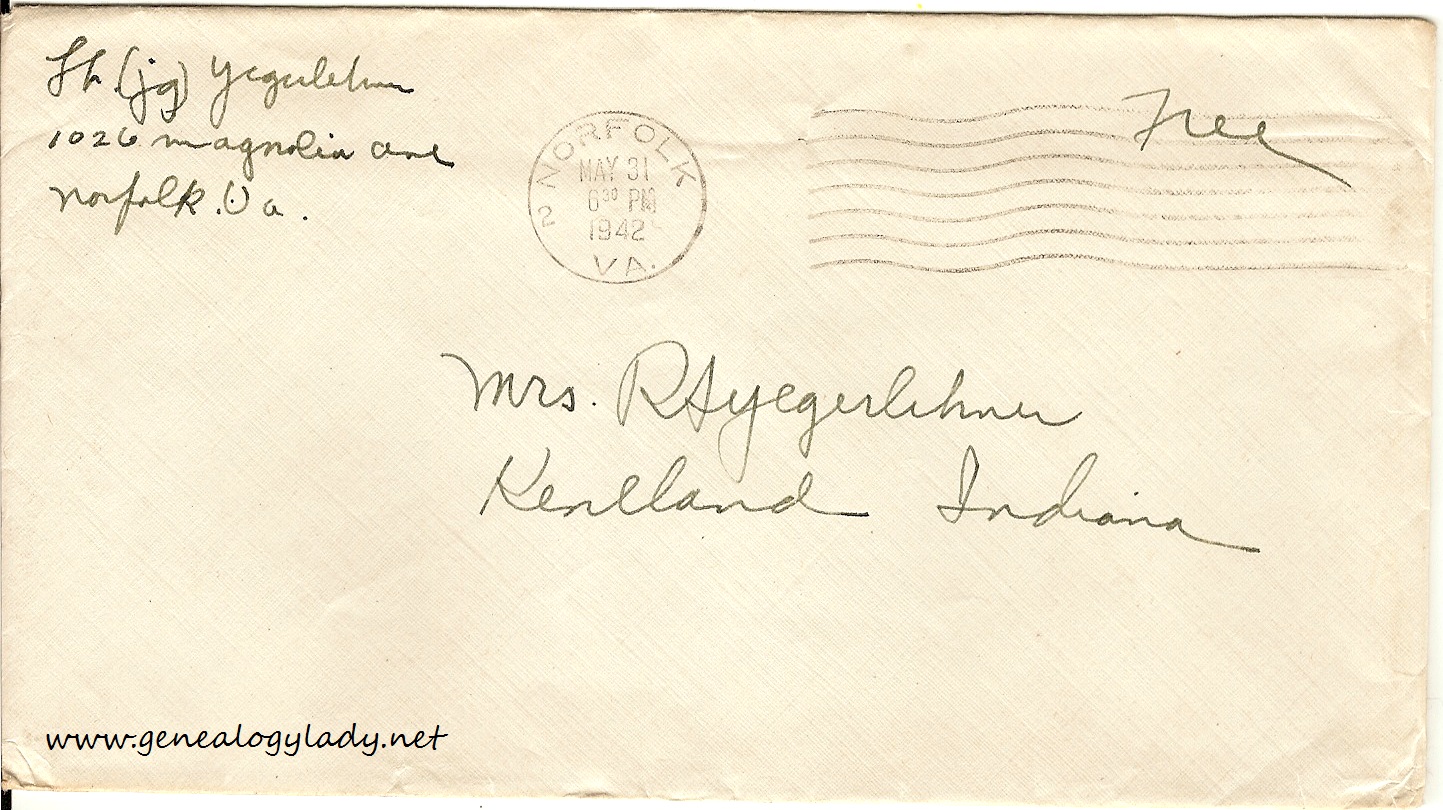 Lt (jg) Yegerlehner
1026 Magnolia Ave
Norfolk. Va.
Free
2 NORFOLK
MAY 31
6 30 PM
1942
VA.
Mrs. R S Yegerlehner
Kentland Indiana
www.genealogylady.net